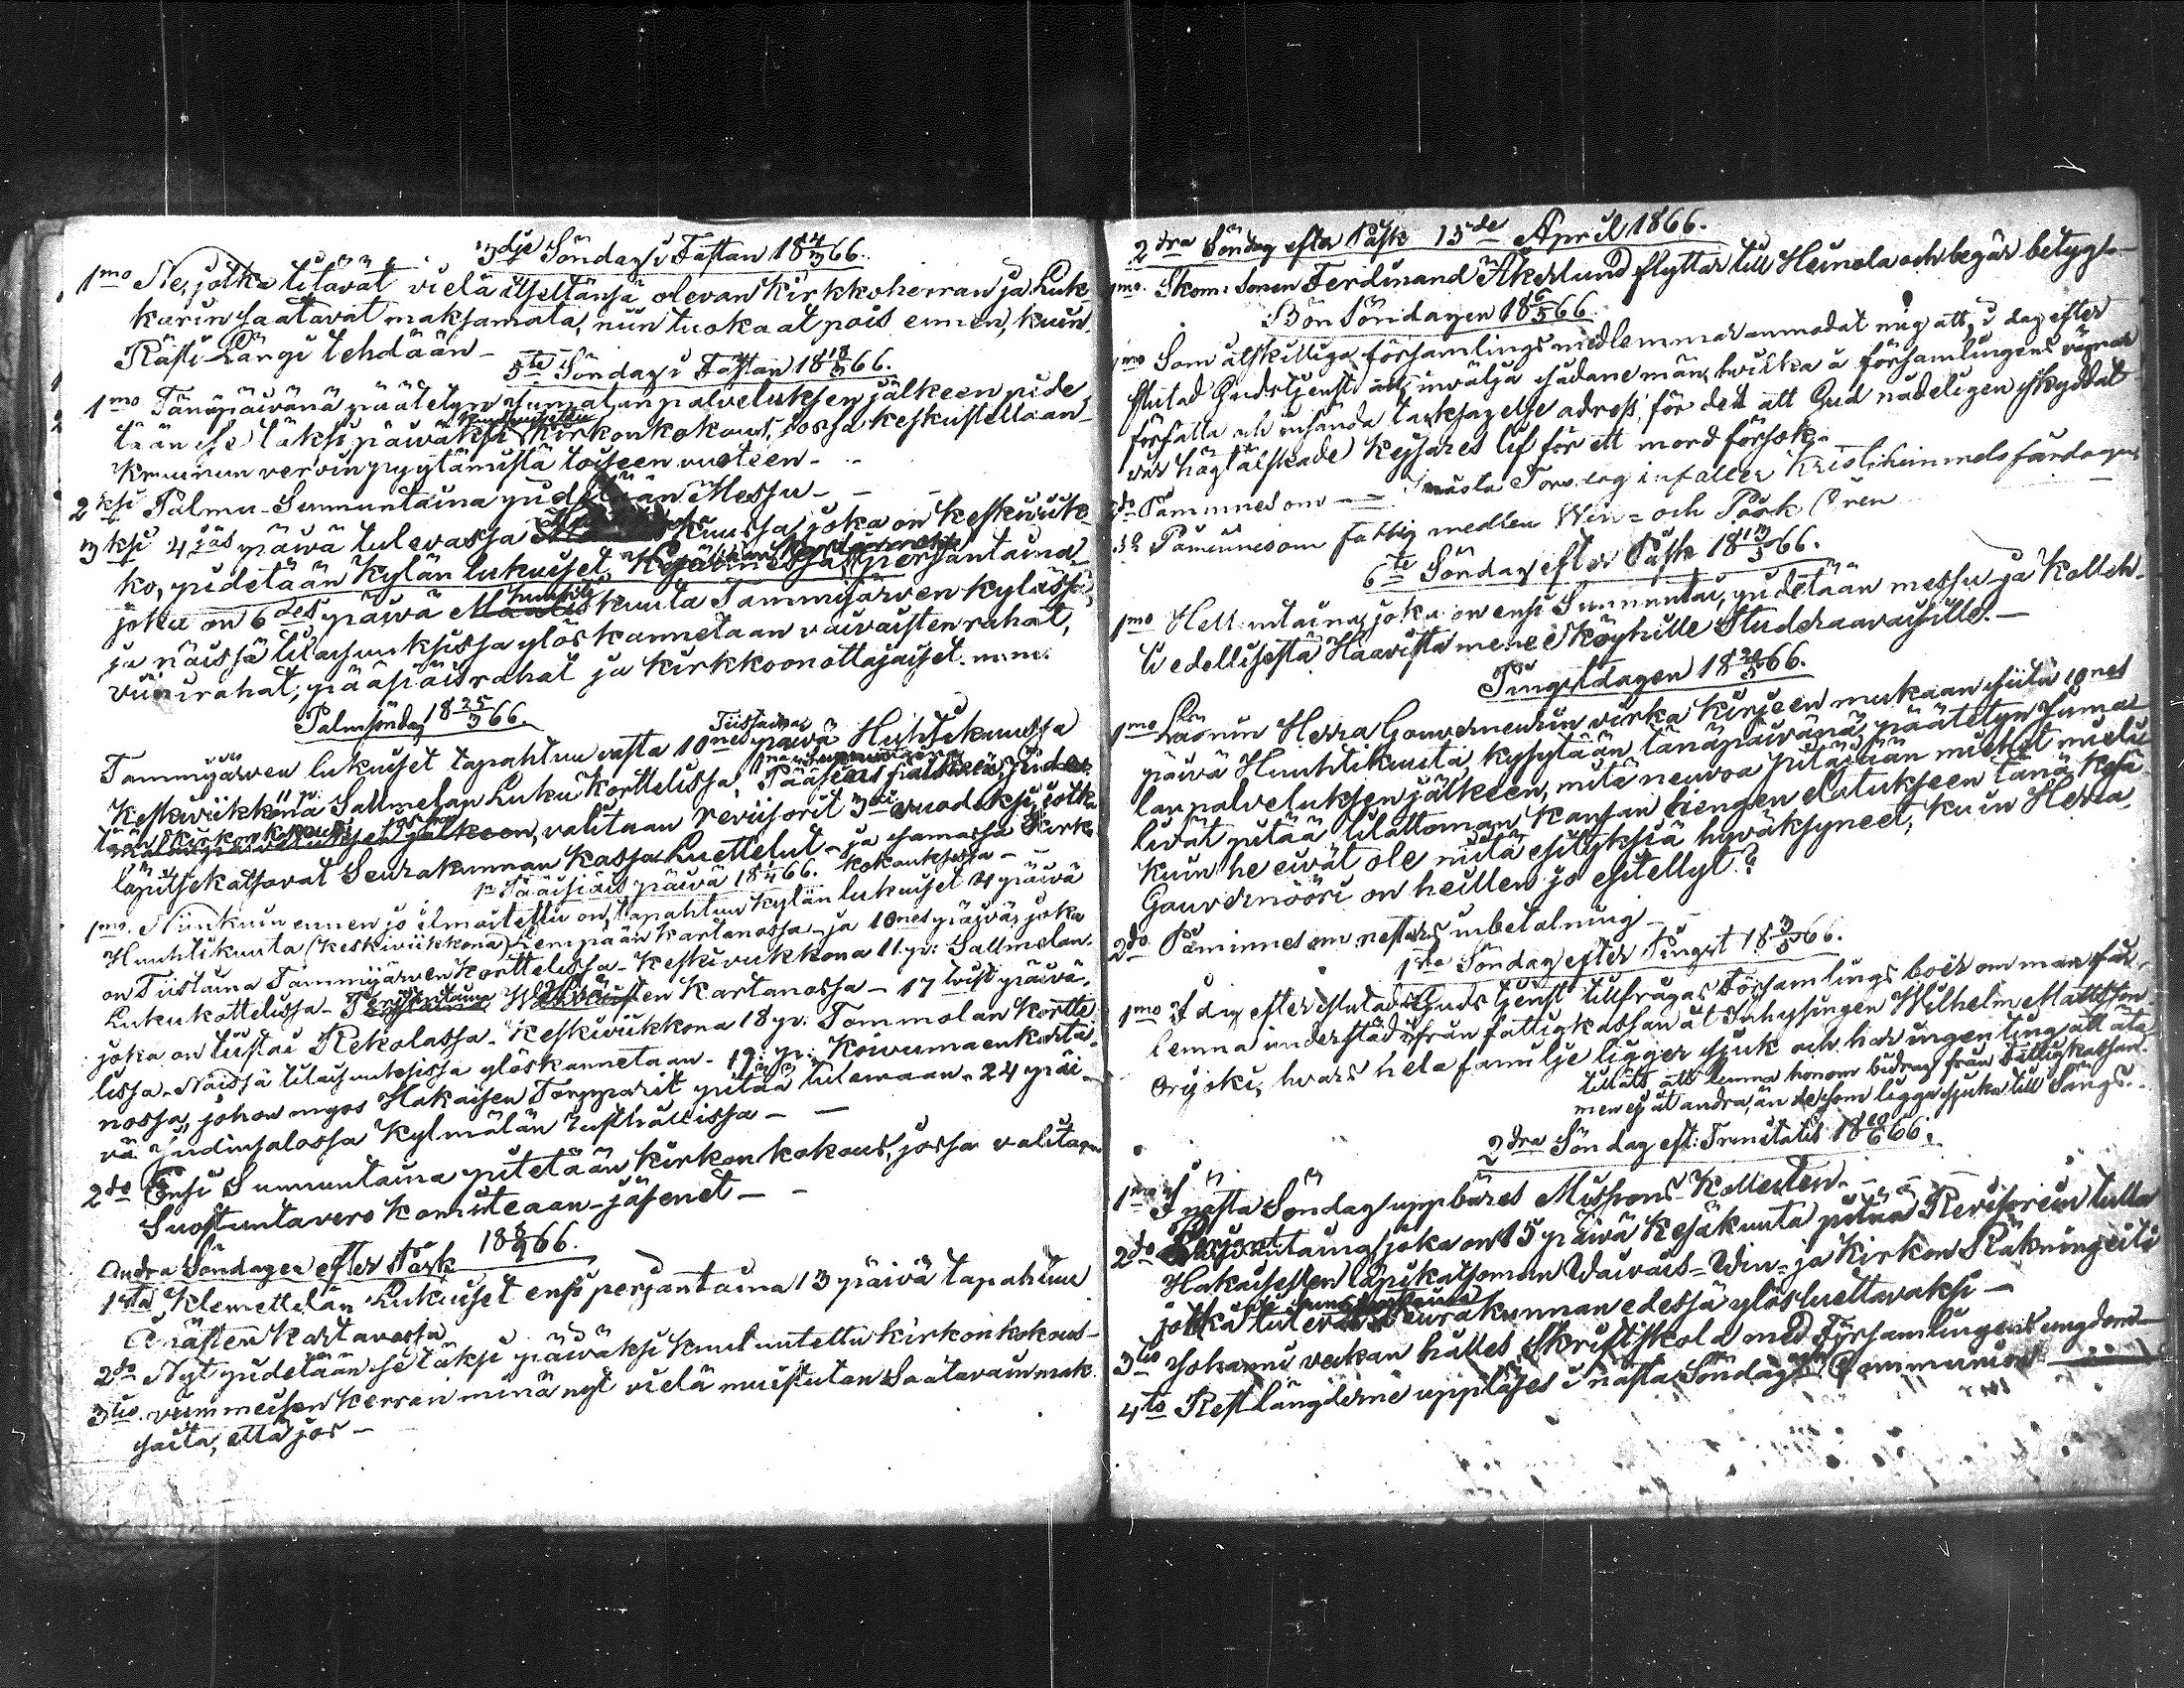 3dje Söndag i Fastan 18 4/3 66.
1mo Ne, jotka titävät vielä itsellänsä olevan Kirkkoherran ja Luk-
karin saatavat maksamata, niin tuokaat pois ennen, kuin
Rästi Längi tehdään -
5te Söndag i Fastan 18 18/3 66.
1mo Tänäpäivänä päätetyn Jumalan palveluksen jälkeen pide-
tään se täksi päiväksi kuulutettu Kirkonkokous, jossa keskustellaan
Kruunun veroin pyytämistä toiseen vuoteen -
2ksi Palmu-Sunnuntaina pidetään Messu -
3ksi 4jäs päivä tulevassa kuussa, joka on keskiviik-
ko, pidetään Kylän lukuiset perjantaina
joka on 6des päivä Huhti kuuta Tammijärven Kylässä,
ja näissä tilaisuuksissa ylöskannetaan vaivaisten rahat,
viinirahat, pääsiäisrahat ja Kirkkoonottajaiset. m.m.
Palmsöndag 18 25/3 66.
Tammijärven lukuiset tapahtuu vasta 10nes päivä Huhtikuussa
Keskiviikkona 11 p: Sallmelan Luku Korttelissa,
valitaan revisorit 3si vuodeksi, jotka
läpitsekatsovat Seurakunnan Kassa Luettelut - ja samassa Kirk-
kokouksessa -
1n Pääsiäis päivä 18 1/4 66.
1mo. Niinkuin ennen jo ilmoitettu on, tapahtuu Kylän lukuiset 4 päivä
Huhtikuuta (Keskiviikkona) Lempään Kartanossa - ja 10nes päivä, joka
on Tiistaina Tammijärven Korttelissa - Keskiviikkona 11. p: Sallmelan
Luku Kottelissa - Perjantaina Kartanossa - 17 toist päivä,
joka on tiistai Rekolassa - Keskiviikkona 18 p: Tommolan Kortte-
lissa - Näissä tilaisuuksissa ylöskannetaan - 19: p: Koivumaen Karta-
nossa, johon myös Hakaisen Torpparit pitää tulemaan. 24 päi-
vä Judinsalossa Kylmälän Rusthållissa -
2do Ensi Sunnuntaina pitetään Kirkon kokous, jossa valitaan
Suostuntavero Komiteaan - jäsenet -
Andra Söndagen efter Påsk 18 8/4 66.
1sta Klemettilän Lukuiset ensi perjantaina 13 päivä tapahtuu
Kartanossa
2do Nyt pidetään se täksi päiväksi kuulutettu Kirkonkokous -
3tio viimmeisen kerran minä nyt vielä muistutan Saatavain mak-
saita, että jos -
2dra Söndag efter Påsk 15de April 1866.
1mo. Skom: sonen Ferdinand Åkerlund flyttar till Heinola och begär betyg -
Bön Söndagen 18 6/5 66
1mo Som åtskilliga församlings medlemmar anmodat mig att, i dag efter
slutad Gudstjenst invälja sådane män, hvilka å församlingens vägnar
författa och insända tacksägelse adress, för det att Gud nådeligen skyddat
vår högtälskade Kejsares lif för ett mord försök -
2do Påminnes om - Nästa Torsdag infaller Kristihimmelsfärdagen
3o Påminnes om fattig medlen Win= och Påsk Ören
6te Söndag efter Påsk 18 13/5 66.
1mo Helluntaina, joka on ensi Sunnuntai, pidetään messu ja Kolleh-
ti edellisestä Haavista menee Köyhille Studeraavaisille. -
Pingstdagen 18 20/5 66.
1mo Läänin Herra Gouverneurin virka kirjeen mukaan siitä 10nes
päivä Huhtikuuta, kysytään tänäpäivänä, päätetyn Juma-
lanpalveluksen jälkeen, mitä neuvoa pitäjään miehet mieli-
sivät pitää tilattoman Kansan hengen elatukseen tänä kesä
kuin he eivät ole niitä esityksiä hyväksyneet, kuin Herra
Gouvernööri on heillen jo esitellyt?
2do Påminnes om resters inbetalning -
1sta Söndag efter Pingst 18 3/6 66.
1mo I dag efter slutad Guds tjenst tillfrågas Församlings boer om man får
lemna understöd från fattigkassan åt Inhysingen Wilhelm Mattsson
Orijoki, hvars hela familje ligger sjuk och har ingenting att äta
tilläts att lemna honom bidrag från Fattigkassan
men ej åt andra, än de som ligga sjuka till Sängs.
2dra Söndag eft: Trinitatis 18 10/6 66.
1mo I nästa Söndag uppbäres Missions Kollekten. -
2do Perjantaina, joka on 15 päivä Kesäkuuta pitää Revisorein tulla
Hakaisellen läpikatsoman Vaivais= Win= ja Kirkon Räkningeitä
jotka tulevat Seurakunnan edessä ylösluettavaksi -
3tio Johanni veckan hålles Skriftskola med Församlingens ungdom
4to Restlängderne uppläses i nästa Söndag. Communion